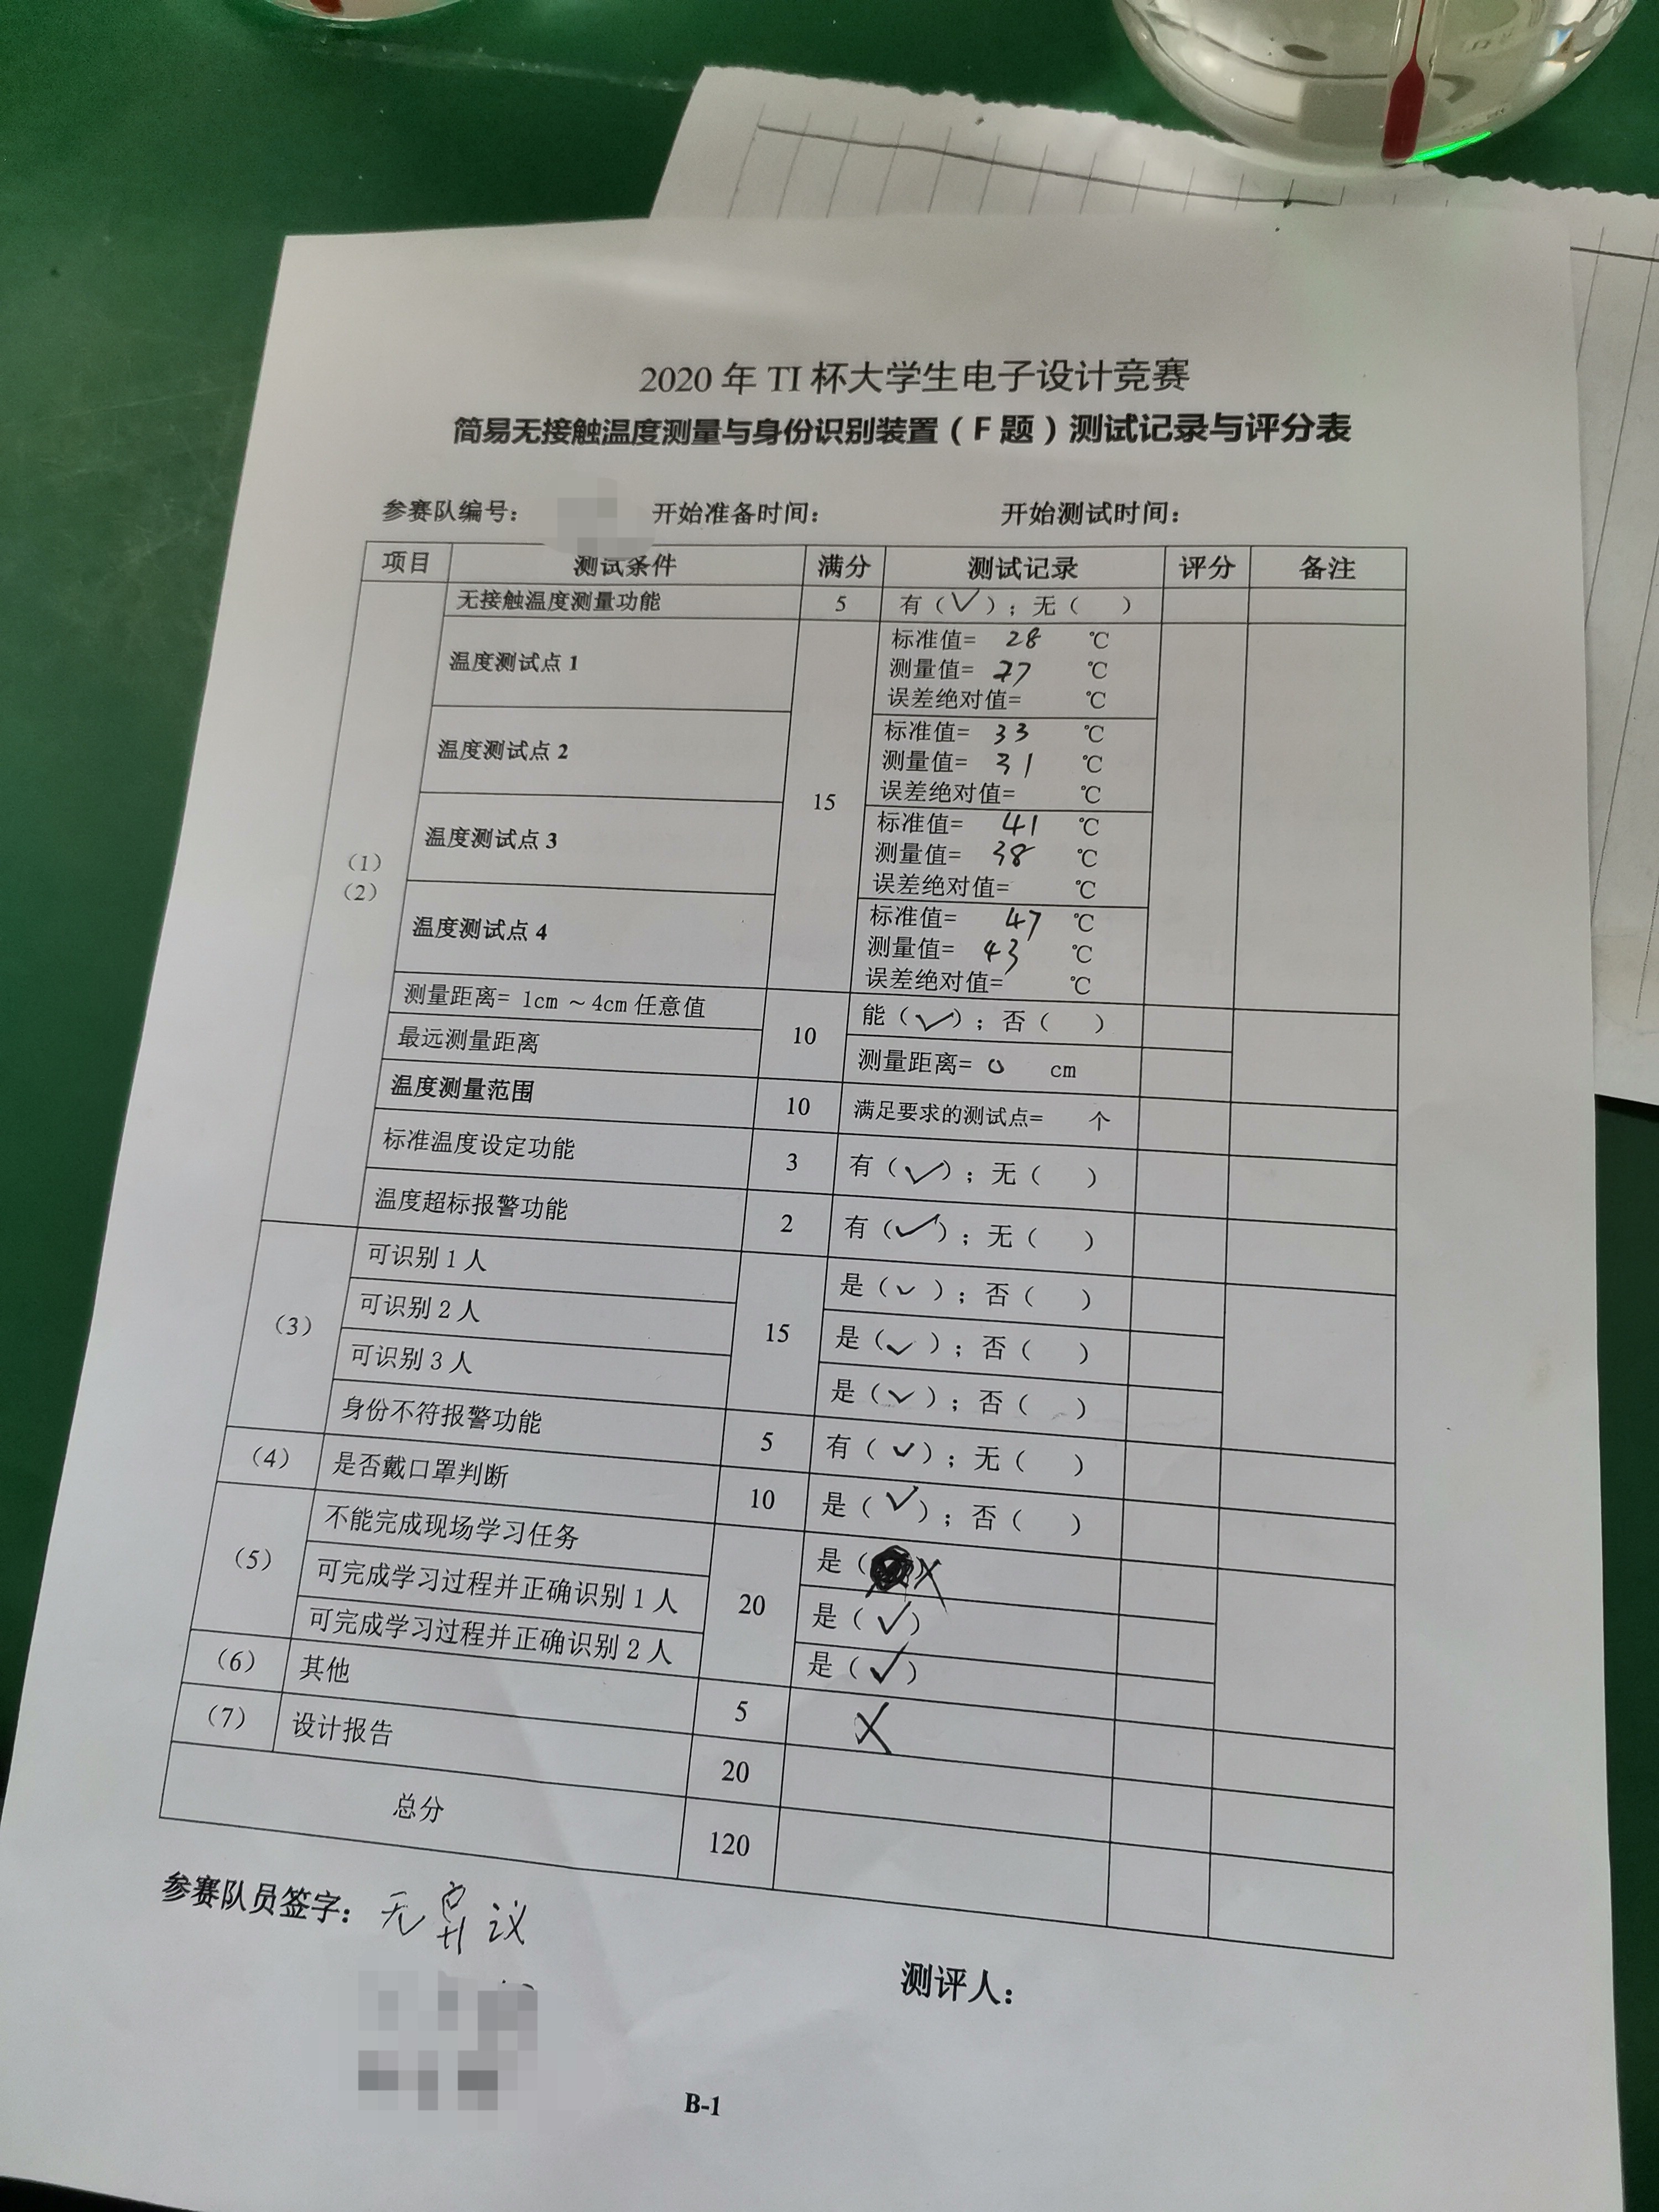 2020 年 TI 杯大学生电子设计竞赛
简易无接触温度测量与身份识别装置（F 题）测试记录与评分表
参赛队编号： 开始准备时间： 开始测试时间：
项目 测试条件 满分 测试记录 评分 备注
（1）
（2）
无接触温度测量功能 5 有（✓）；无（ ）
温度测试点 1 15 标准值= 28 ℃
测量值= 27 ℃
误差绝对值= ℃
温度测试点 2 标准值= 33 ℃
测量值= 31 ℃
误差绝对值= ℃
温度测试点 3 标准值= 41 ℃
测量值= 38 ℃
误差绝对值= ℃
温度测试点 4 标准值= 47 ℃
测量值= 43 ℃
误差绝对值= ℃
测量距离= 1cm ~ 4cm 任意值 10 能（✓）；否（ ）
最远测量距离 测量距离= 0 cm
温度测量范围 10 满足要求的测试点= 个
标准温度设定功能 3 有（✓）；无（ ）
温度超标报警功能 2 有（✓）；无（ ）
（3） 可识别 1 人 15 是（✓）；否（ ）
可识别 2 人 是（✓）；否（ ）
可识别 3 人 是（✓）；否（ ）
身份不符报警功能 5 有（✓）；无（ ）
（4） 是否戴口罩判断 10 是（✓）；否（ ）
（5） 不能完成现场学习任务 20 是（ ）X
可完成学习过程并正确识别 1 人 是（✓）
可完成学习过程并正确识别 2 人 是（✓）
（6） 其他 5 X
（7） 设计报告 20
总分 120
参赛队员签字： 无异议
测评人：
B-1